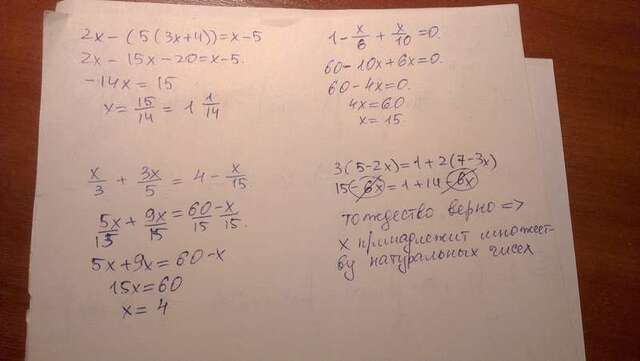 2x - (5(3x+4)) = x-5
2x - 15x - 20 = x-5.
-14x = 15
x = 15/14 = 1 1/14
x/3 + 3x/5 = 4 - x/15.
5x/15 + 9x/15 = 60/15 - x/15.
5x+9x = 60-x
15x = 60
x = 4
1 - x/6 + x/10 = 0.
60-10x+6x=0.
60-4x=0.
4x=60
x=15
3(5-2x)=1+2(7-3x)
15-6x=1+14-6x
тождество верно =>
x принадлежит множест-
ву натуральных чисел